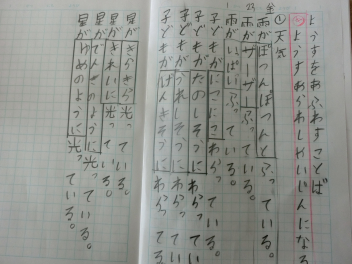 1.23 金
ようすをあらわすことば
ようすをあらわしゃしんになる
①天気
雨がぽつんぽつんとふっている。
雨がザーザーふっている。
雨がいっぱいふっている。
子どもがにこにこわらっている
子どもがたのしそうにわらってい
子どもがうれしそうにわらってい
子どもがげんきそうにわらってい
星がきらきら光っている。
星がきれいに光っている。
星がでんきのように光っている。
星がゆめのように光っている。